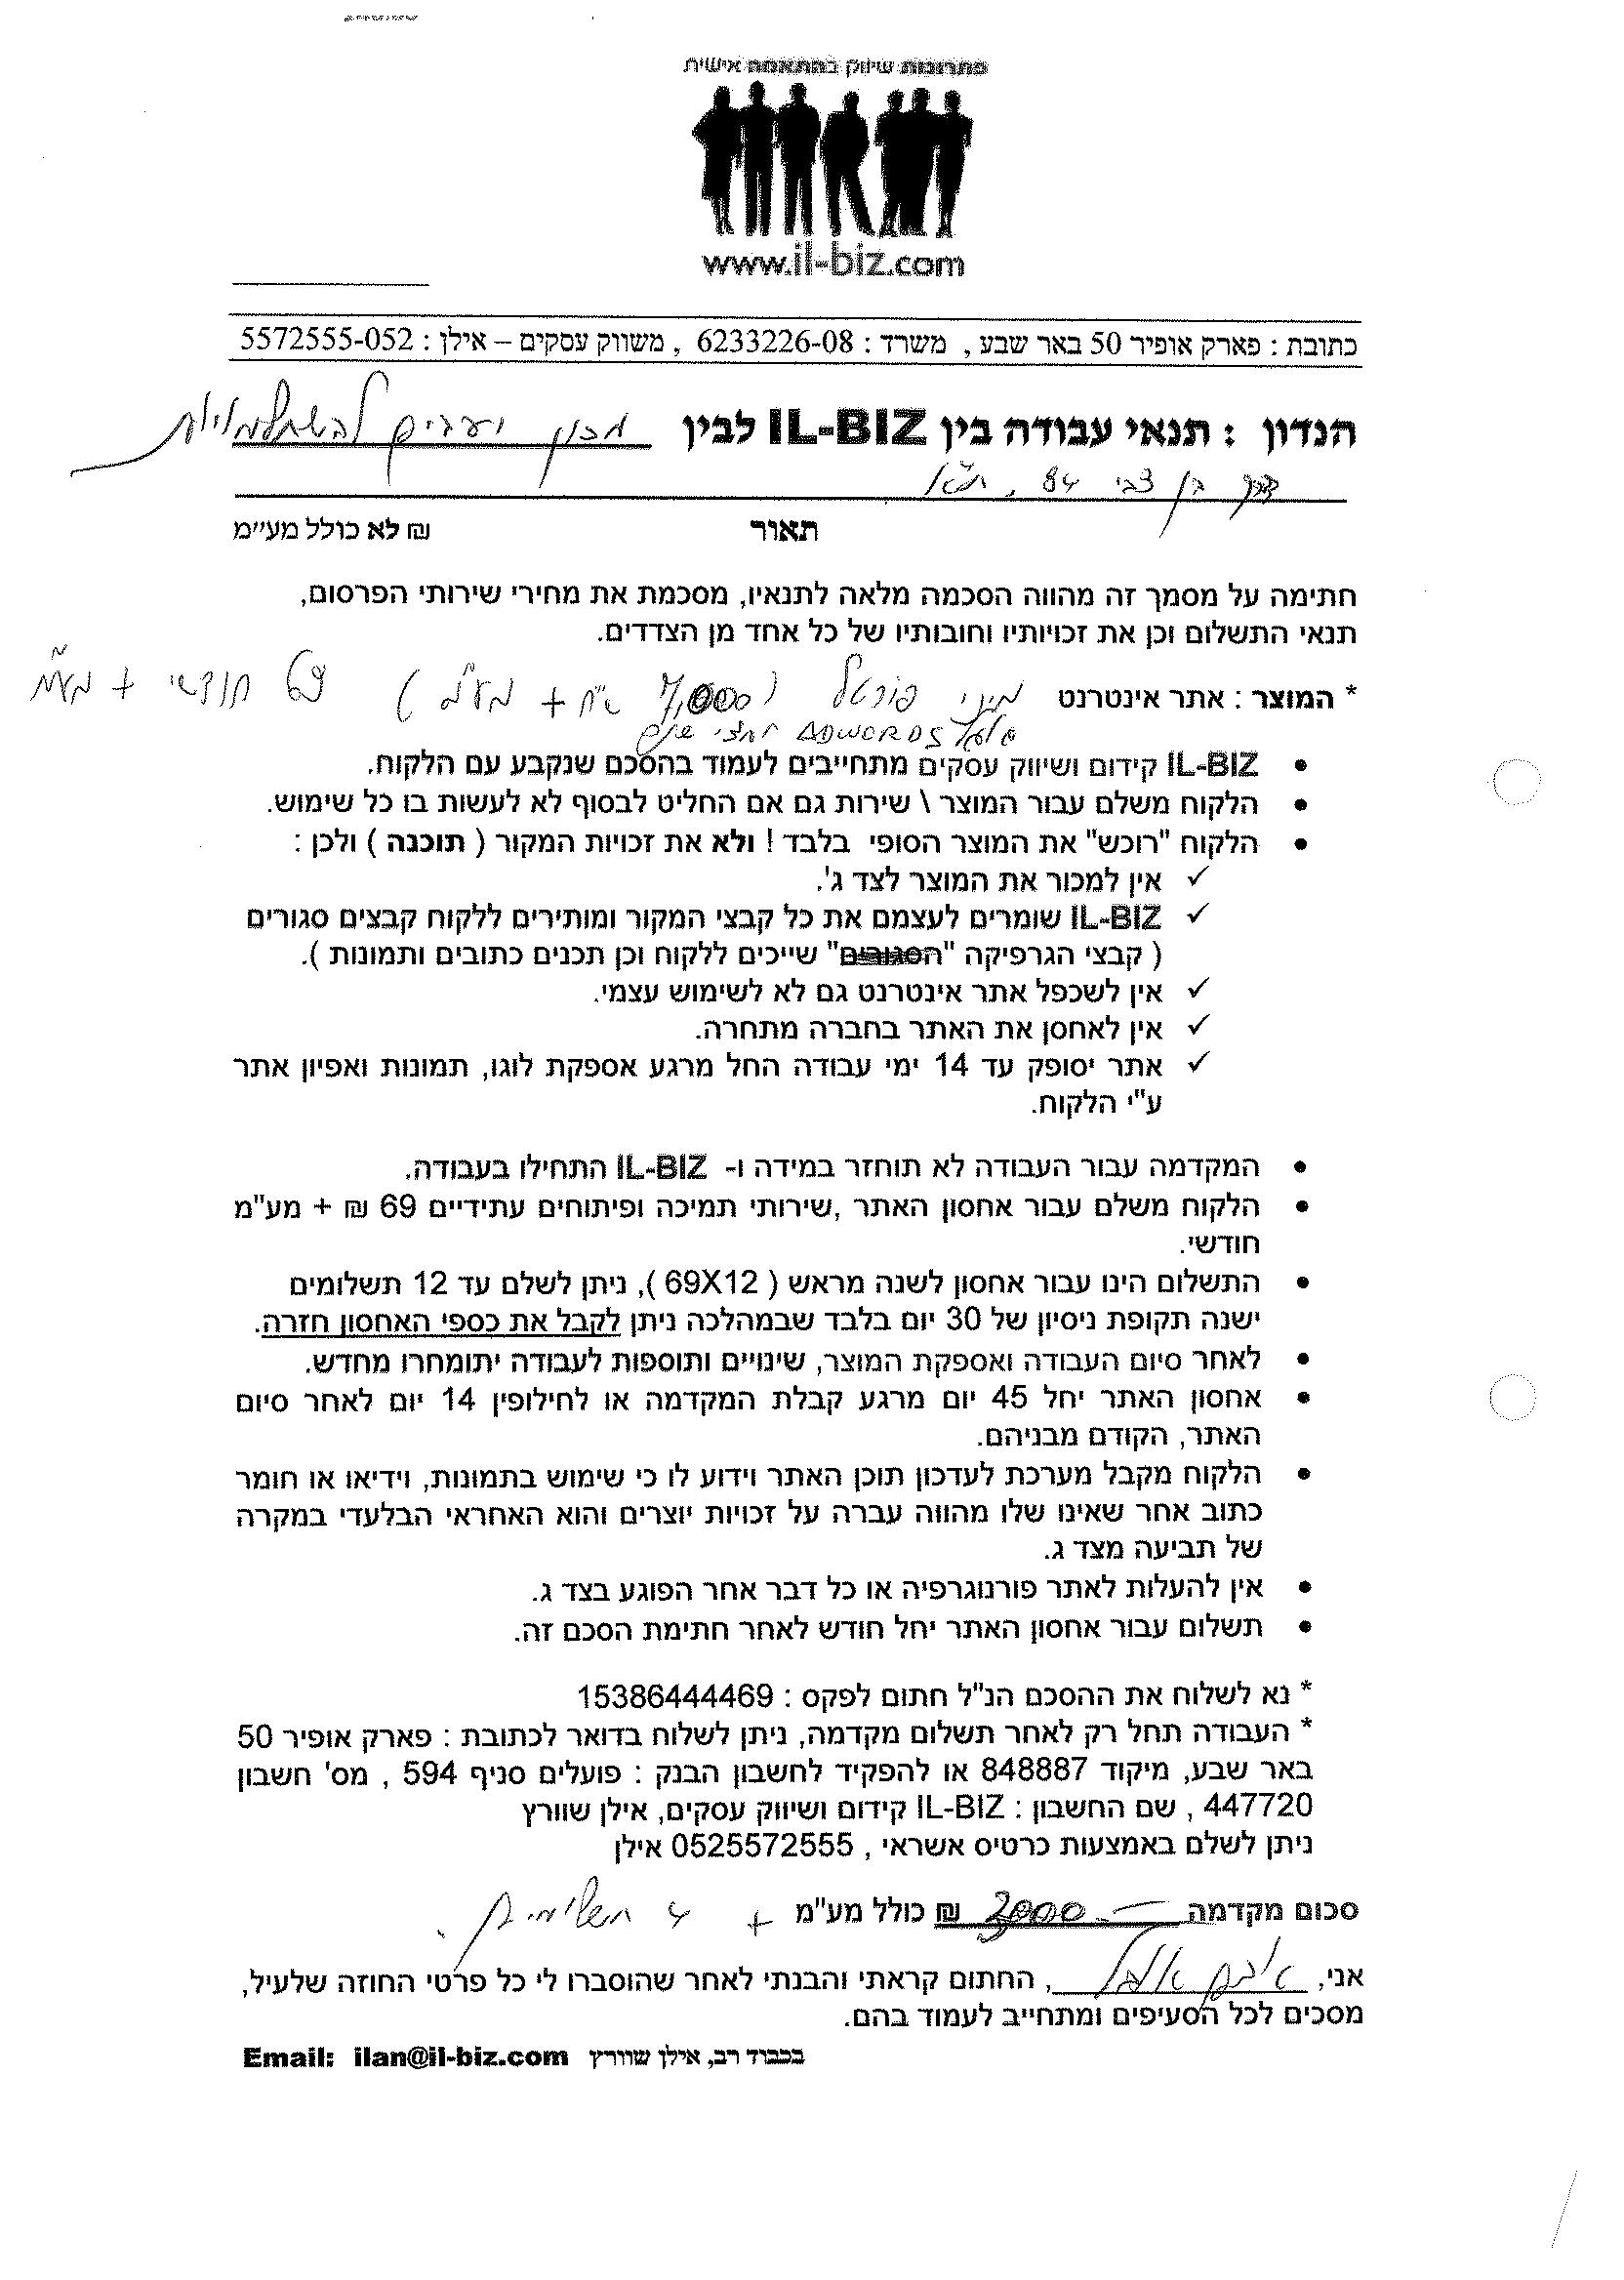 פתרונות שיווק בהתאמה אישית
www.il-biz.com
כתובת : פארק אופיר 50 באר שבע , משרד : 6233226-08 , משווק עסקים – אילן : 5572555-052
הנדון : תנאי עבודה בין IL-BIZ לבין מכון יערים להשתלמויות
דרך בן צבי 84, ת"א
תאור
₪ לא כולל מע"מ
חתימה על מסמך זה מהווה הסכמה מלאה לתנאיו, מסכמת את מחירי שירותי הפרסום,
תנאי התשלום וכן את זכויותיו וחובותיו של כל אחד מן הצדדים.
* המוצר : אתר אינטרנט מיני פורטל (7,000 ש"ח + מע"מ) חודשי + מע"מ
ADWORDS חצי שנה
• IL-BIZ קידום ושיווק עסקים מתחייבים לעמוד בהסכם שנקבע עם הלקוח.
• הלקוח משלם עבור המוצר \ שירות גם אם החליט לבסוף לא לעשות בו כל שימוש.
• הלקוח "רוכש" את המוצר הסופי בלבד ! ולא את זכויות המקור ( תוכנה ) ולכן :
✓ אין למכור את המוצר לצד ג'.
✓ IL-BIZ שומרים לעצמם את כל קבצי המקור ומותירים ללקוח קבצים סגורים
( קבצי הגרפיקה "הסגורים" שייכים ללקוח וכן תכנים כתובים ותמונות ).
✓ אין לשכפל אתר אינטרנט גם לא לשימוש עצמי.
✓ אין לאחסן את האתר בחברה מתחרה.
✓ אתר יסופק עד 14 ימי עבודה החל מרגע אספקת לוגו, תמונות ואפיון אתר
ע"י הלקוח.
• המקדמה עבור העבודה לא תוחזר במידה ו- IL-BIZ התחילו בעבודה.
• הלקוח משלם עבור אחסון האתר ,שירותי תמיכה ופיתוחים עתידיים 69 ₪ + מע"מ
חודשי.
• התשלום הינו עבור אחסון לשנה מראש ( 69X12 ), ניתן לשלם עד 12 תשלומים
ישנה תקופת ניסיון של 30 יום בלבד שבמהלכה ניתן לקבל את כספי האחסון חזרה.
• לאחר סיום העבודה ואספקת המוצר, שינויים ותוספות לעבודה יתומחרו מחדש.
• אחסון האתר יחל 45 יום מרגע קבלת המקדמה או לחילופין 14 יום לאחר סיום
האתר, הקודם מבניהם.
• הלקוח מקבל מערכת לעדכון תוכן האתר וידוע לו כי שימוש בתמונות, וידיאו או חומר
כתוב אחר שאינו שלו מהווה עברה על זכויות יוצרים והוא האחראי הבלעדי במקרה
של תביעה מצד ג.
• אין להעלות לאתר פורנוגרפיה או כל דבר אחר הפוגע בצד ג.
• תשלום עבור אחסון האתר יחל חודש לאחר חתימת הסכם זה.
* נא לשלוח את ההסכם הנ"ל חתום לפקס : 15386444469
* העבודה תחל רק לאחר תשלום מקדמה, ניתן לשלוח בדואר לכתובת : פארק אופיר 50
באר שבע, מיקוד 848887 או להפקיד לחשבון הבנק : פועלים סניף 594 , מס' חשבון
447720 , שם החשבון : IL-BIZ קידום ושיווק עסקים, אילן שוורץ
ניתן לשלם באמצעות כרטיס אשראי , 0525572555 אילן
סכום מקדמה 3000 ₪ כולל מע"מ + 4 תשלומים.
אני, , החתום קראתי והבנתי לאחר שהוסברו לי כל פרטי החוזה שלעיל,
מסכים לכל הסעיפים ומתחייב לעמוד בהם.
בכבוד רב, אילן שוורץ Email: ilan@il-biz.com